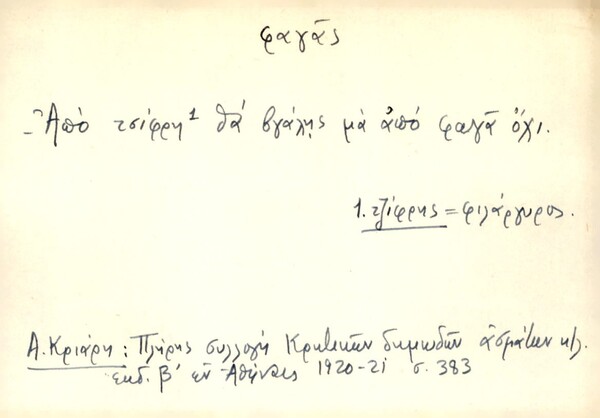 φαγᾶς
- Ἀπό τσίφρη¹ θά βγάλῃς μά ἀπό φαγᾶ ὄχι.
1. τζίφρης = φιλάργυρος.
Α. Κριάρη : Πλήρης συλλογή Κρητικῶν δημωδῶν ᾀσμάτων κτλ.
ἐκδ. β' ἐν Ἀθήναις 1920-21 σ. 383